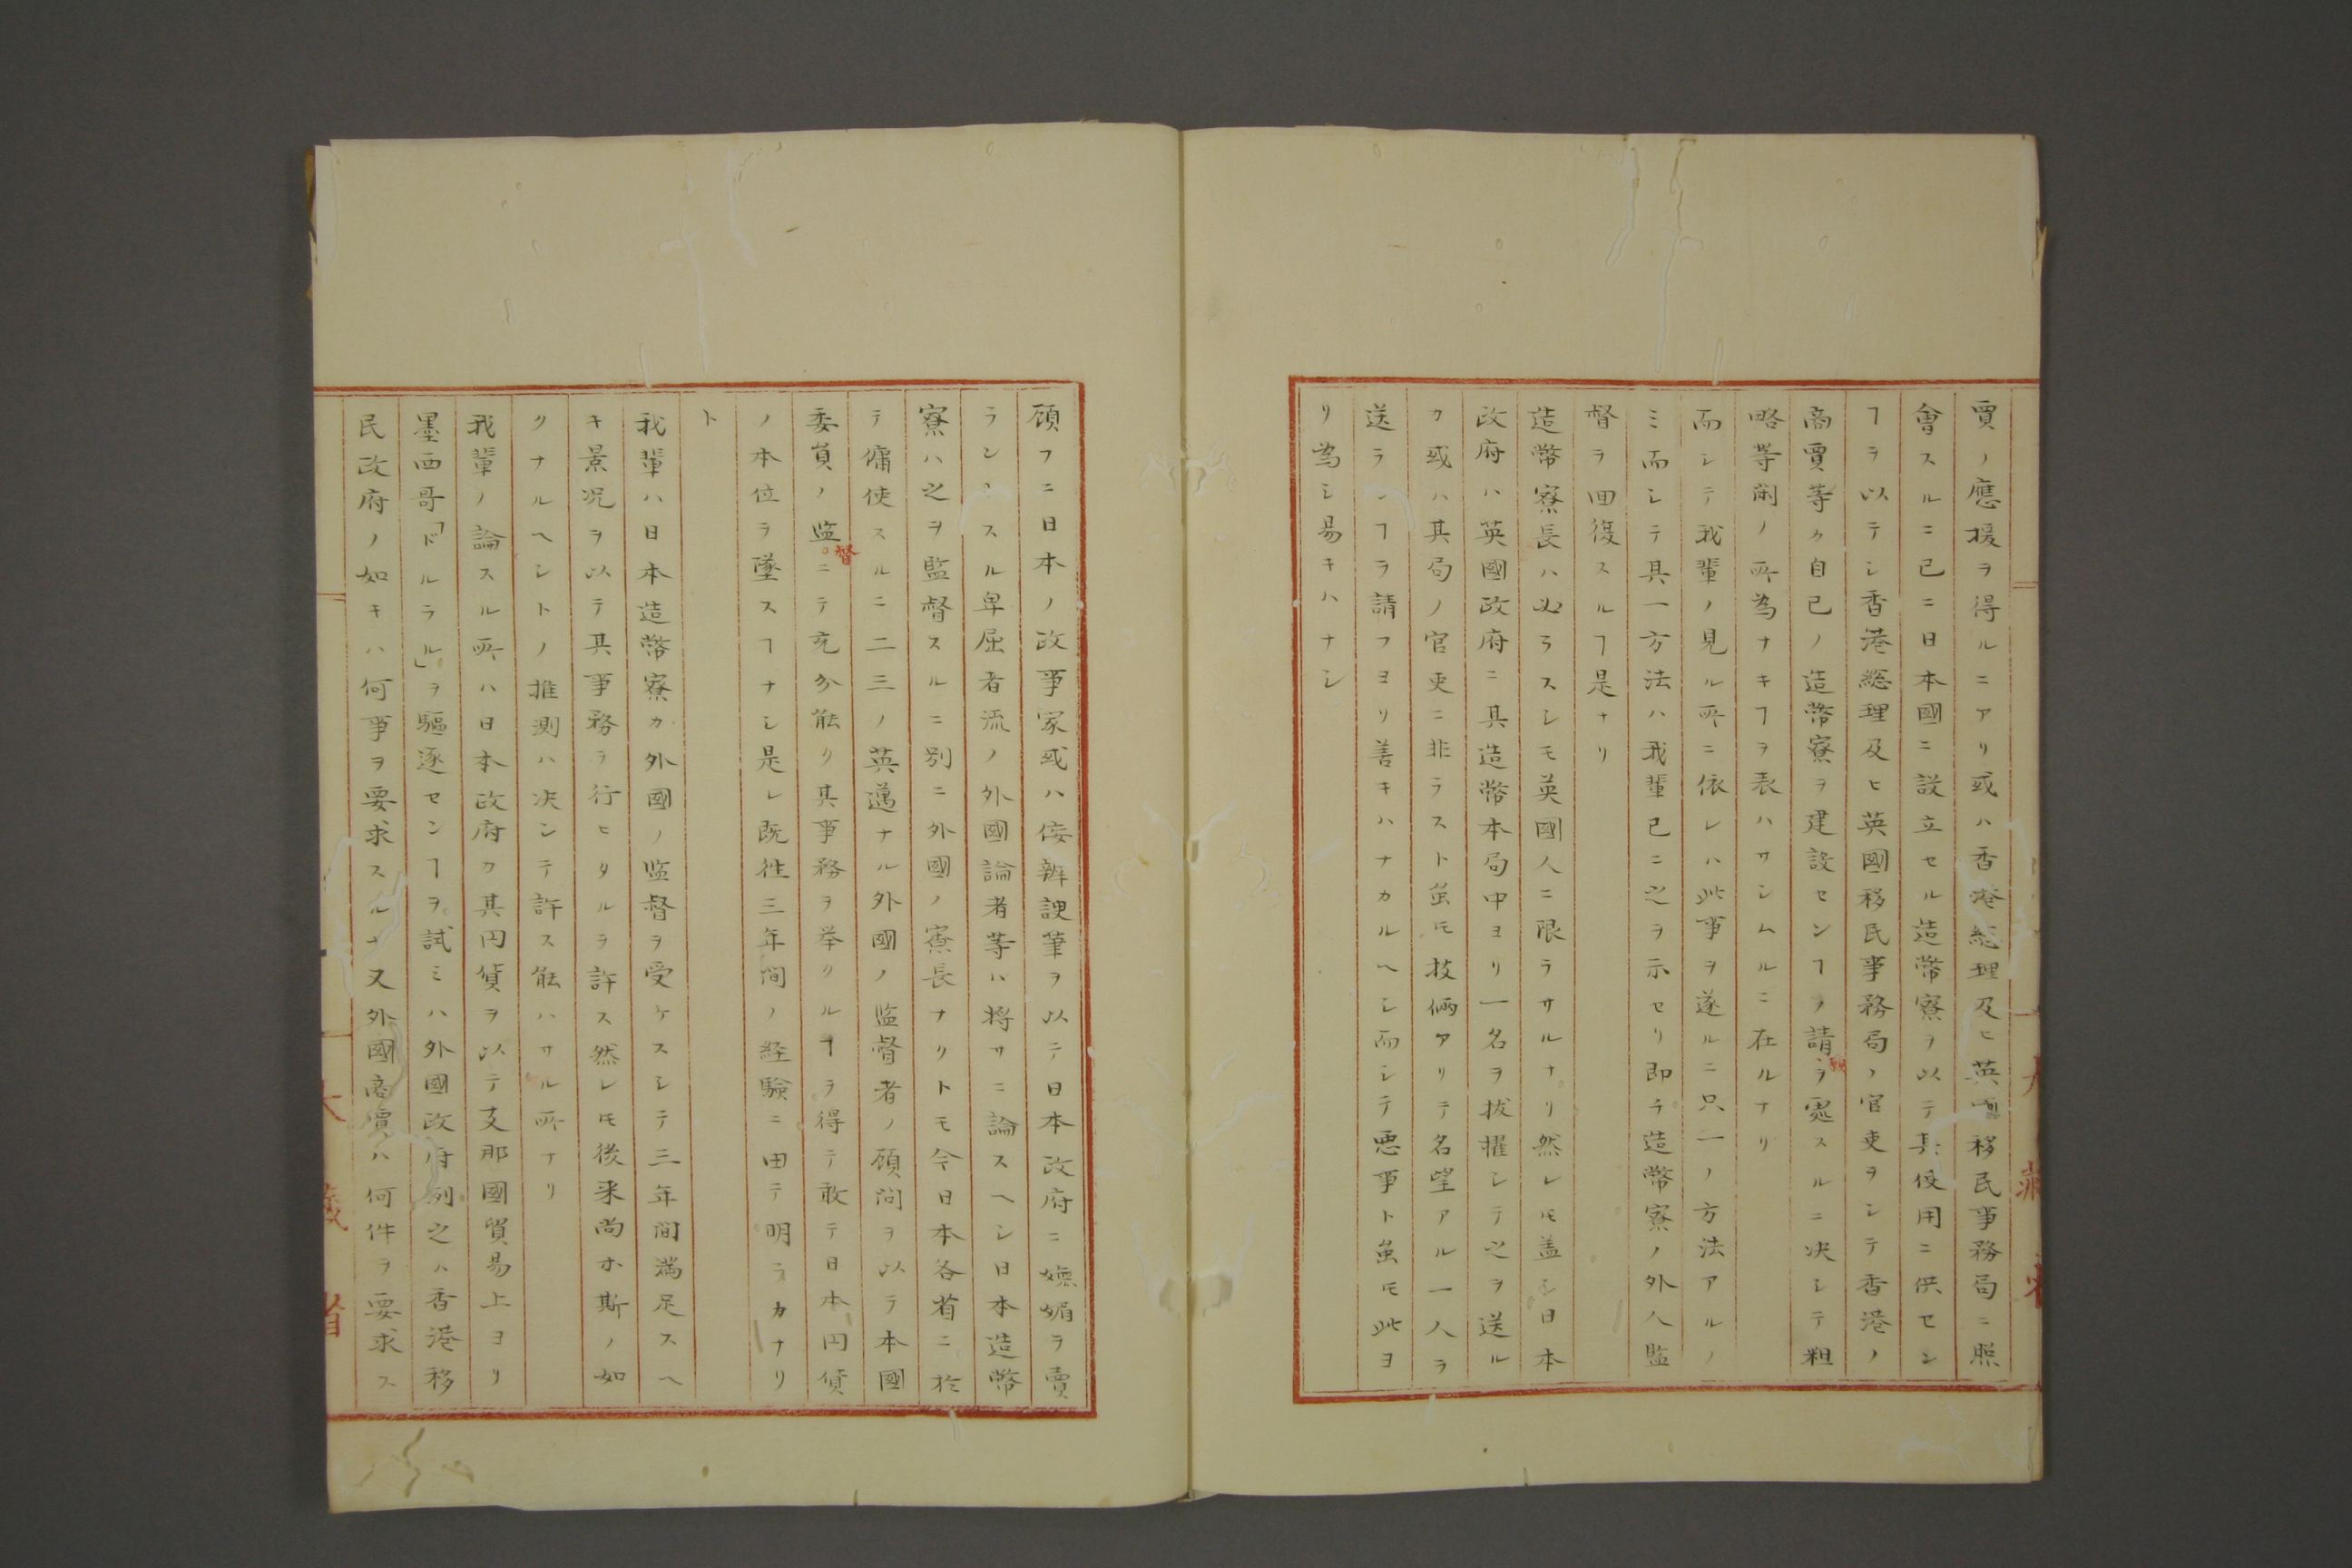 賈ノ應援ヲ得ルニアリ或ハ香港総理及ヒ英國移民事務局ニ照
會スルニ已ニ日本國ニ設立セル造幣寮ヲ以テ其使用ニ供セン
ヿヲ以テシ香港総理及ヒ英國移民事務局ノ官吏ヲシテ香港ノ
商賈等カ自己ノ造幣寮ヲ建設センヿノ請ヲ處スルニ决シテ粗
略等閑ノ所為ナキヿヲ表ハサシムルニ在ルナリ
而シテ我輩ノ見ル所ニ依レハ此事ヲ遂ルニ只一ノ方法アルノ
ミ而シテ其一方法ハ我輩已ニ之ヲ示セリ即チ造幣寮ノ外人監
督ヲ回復スルヿ是ナリ
造幣寮長ハ必ラスシモ英國人ニ限ラサルナリ然レ𪜈盖シ日本
政府ハ英國政府ニ其造幣本局中ヨリ一名ヲ抜擢シテ之ヲ送ル
カ或ハ其局ノ官吏ニ非ラスト虽𪜈技倆アリテ名望アル一人ヲ
送ランヿヲ請フヨリ善キハナカルヘシ而シテ悪事ト虽𪜈此ヨ
リ為シ易キハナシ
顧フニ日本ノ政事家或ハ侫辨諛筆ヲ以テ日本政府ニ嫵媚ヲ賣
ラントスル卑屈者流ノ外國論者等ハ将サニ論スヘシ日本造幣
寮ハ之ヲ監督スルニ別ニ外國ノ寮長ナクトモ今日本各省ニ於
テ傭使スルニ二三ノ英邁ナル外國ノ監督者ノ顧問ヲ以テ本國
委員ノ監督ニテ充分能ク其事務ヲ挙クルヿヲ得テ敢テ日本円貨
ノ本位ヲ墜スヿナシ是レ既往三年間ノ経驗ニ由テ明ラカナリ
ト
我輩ハ日本造幣寮カ外國ノ監督ヲ受ケスシテ三年間満足スヘ
キ景况ヲ以テ其事務ヲ行ヒタルヲ許ス然レ𪜈後来尚ホ斯ノ如
クナルヘシトノ推測ハ决シテ許ス能ハサル所ナリ
我輩ノ論スル所ハ日本政府カ其円貨ヲ以テ支那國貿易上ヨリ
墨西哥「ドルラル」ヲ驅逐センヿヲ試ミハ外國政府例之ハ香港移
民政府ノ如キハ何事ヲ要求スルナ又外國商賈ハ何件ヲ要求ス
大藏省